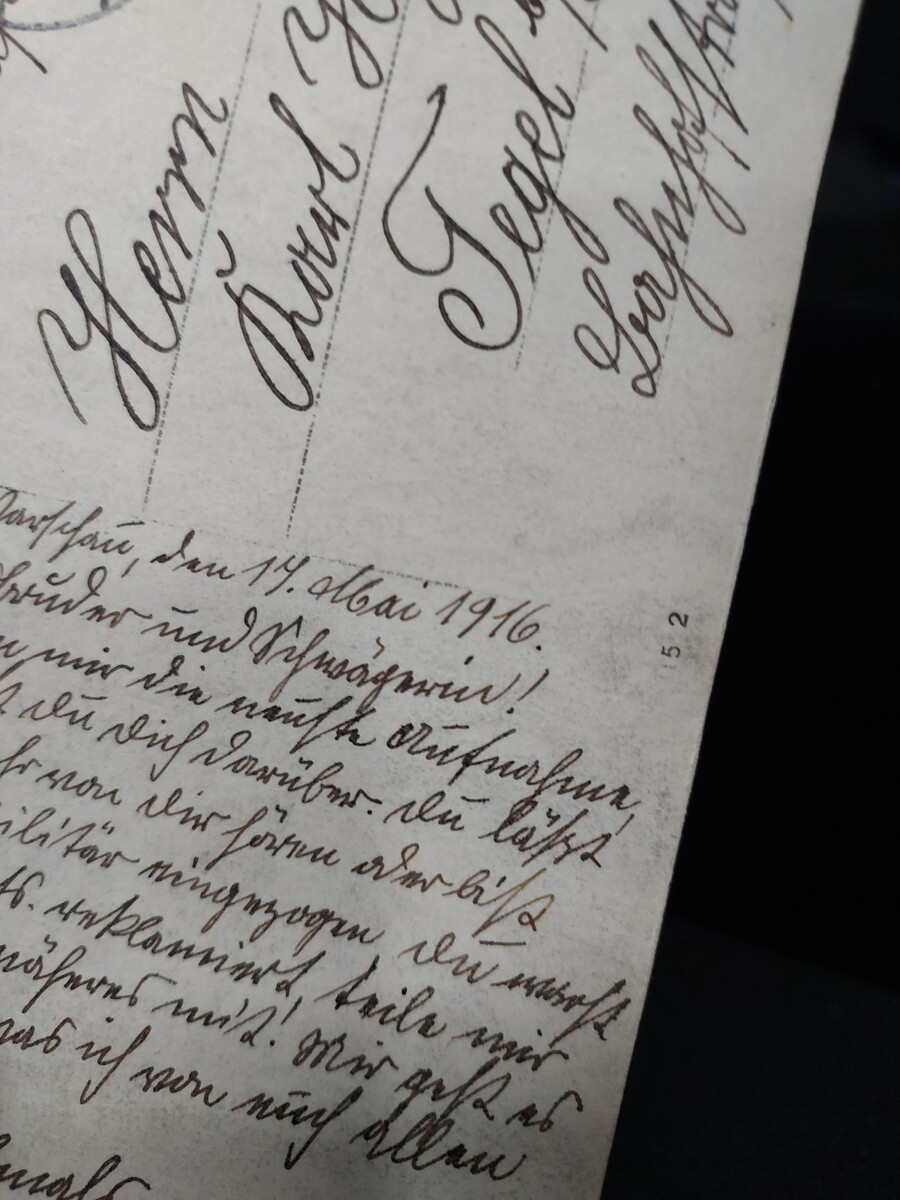 Herrn
Karl H
Tegel
Warschau, den 17. Mai 1916.
Bruder und Schwägerin!
mir die neuste Aufnahme,
du dich darüber. Du läßt
von dir hören oder bist
Militär eingezogen, du warst
reklamiert, teile mir
näheres mit! Mir geht es
was ich von euch allen
152